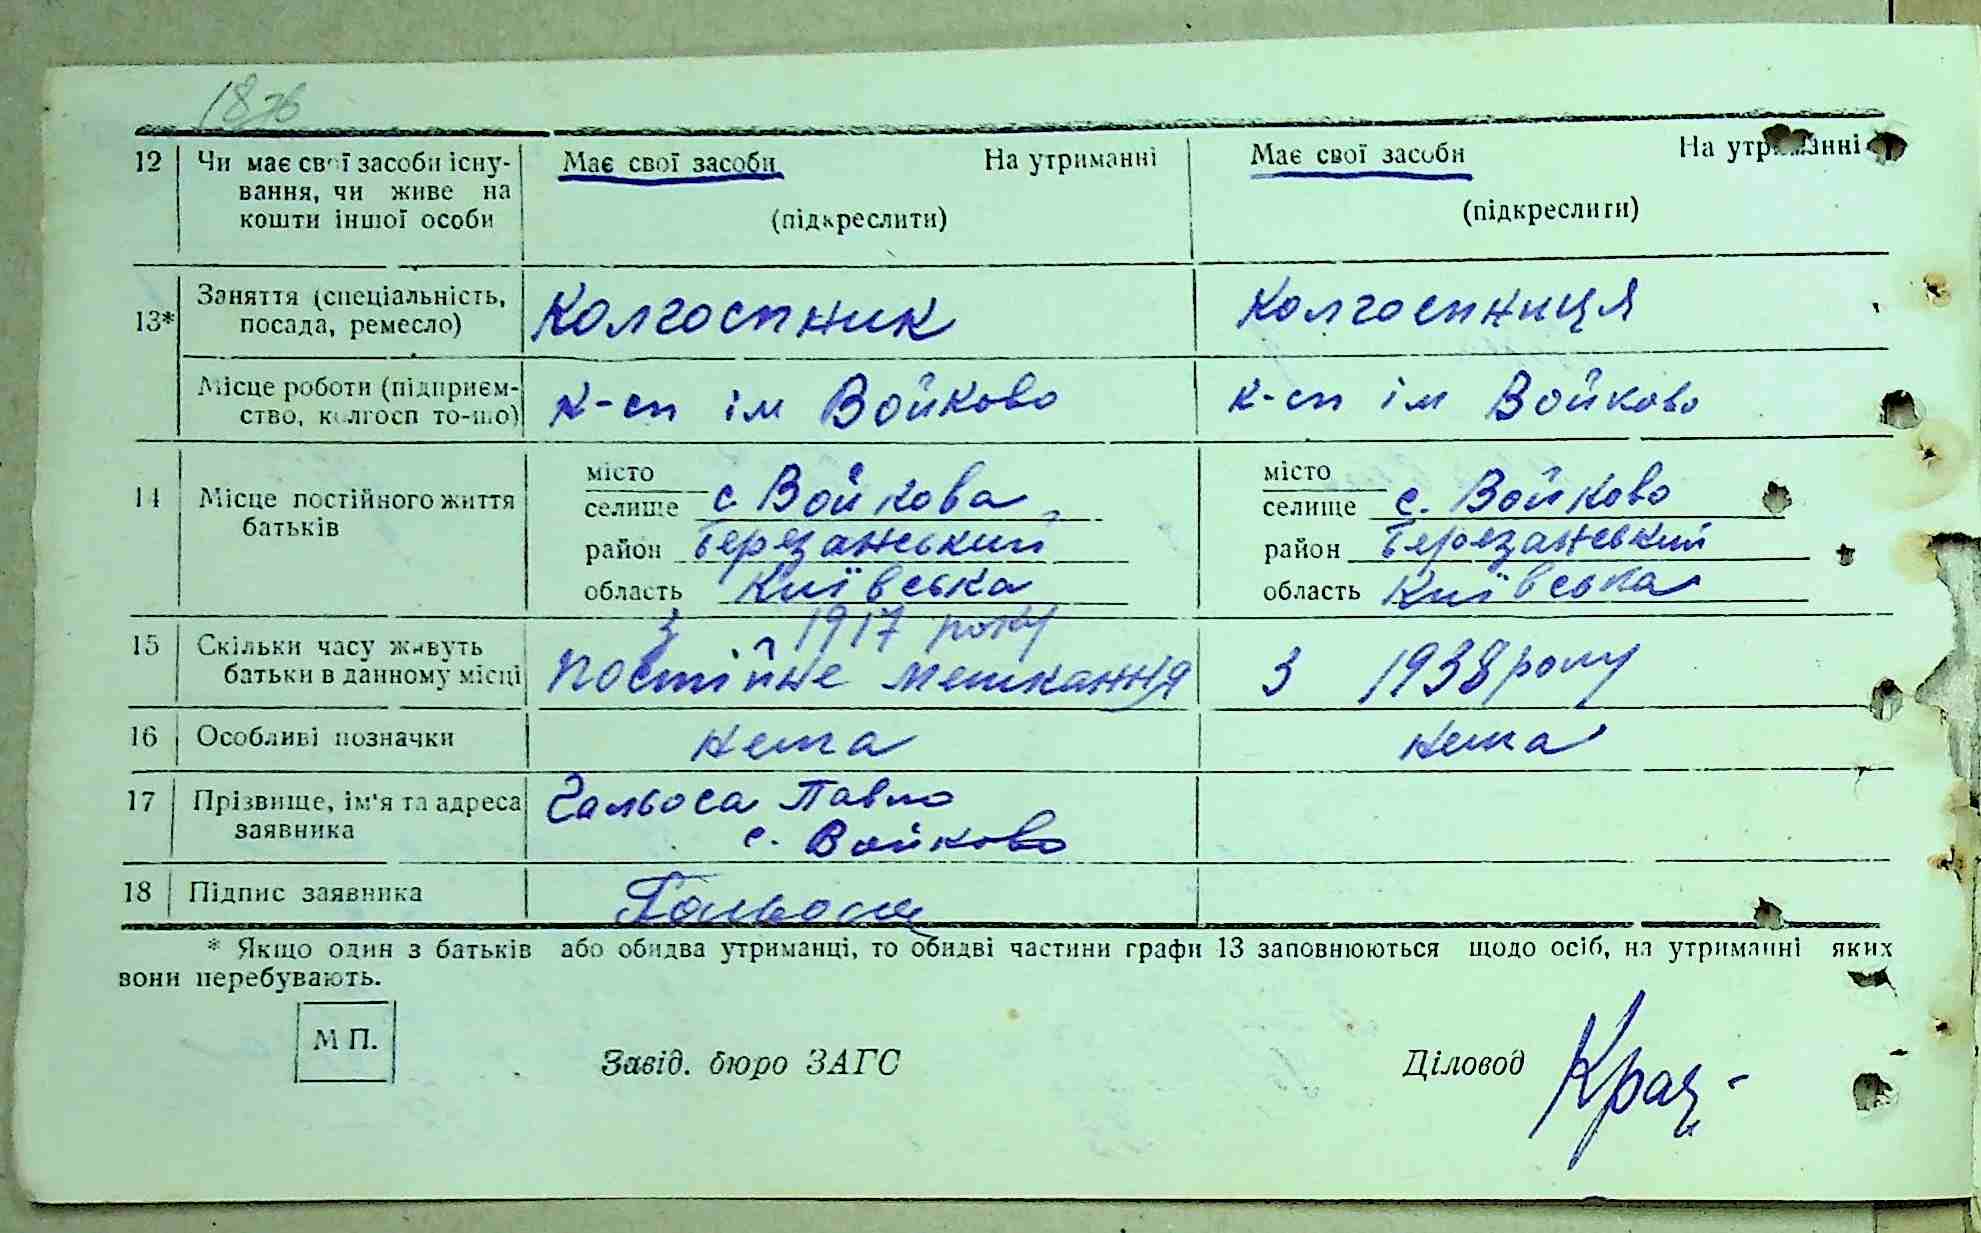 18зв
12 Чи має свої засоби існу- Має свої засоби На утриманні Має свої засоби На утриманні
вання, чи живе на
кошти іншої особи (підкреслити) (підкреслити)
13* Заняття (спеціальність, Колгоспник Колгоспниця
посада, ремесло)
Місце роботи (підприєм- к-сп ім Войково к-сп ім Войково
ство, колгосп то-що)
14 Місце постійного життя місто місто
батьків селище с Войкова селище с. Войково
район Березанський район Березанський
область Київська область Київська
15 Скільки часу живуть з 1917 року
батьки в данному місці постійне мешкання З 1938 року
16 Особливі позначки нема нема
17 Прізвище, ім'я та адреса Гальоса Павло
заявника с. Войково
18 Підпис заявника Гальоса
* Якщо один з батьків або обидва утриманці, то обидві частини графи 13 заповнюються щодо осіб, на утриманні яких
вони перебувають.
М П. Завід. бюро ЗАГС Діловод